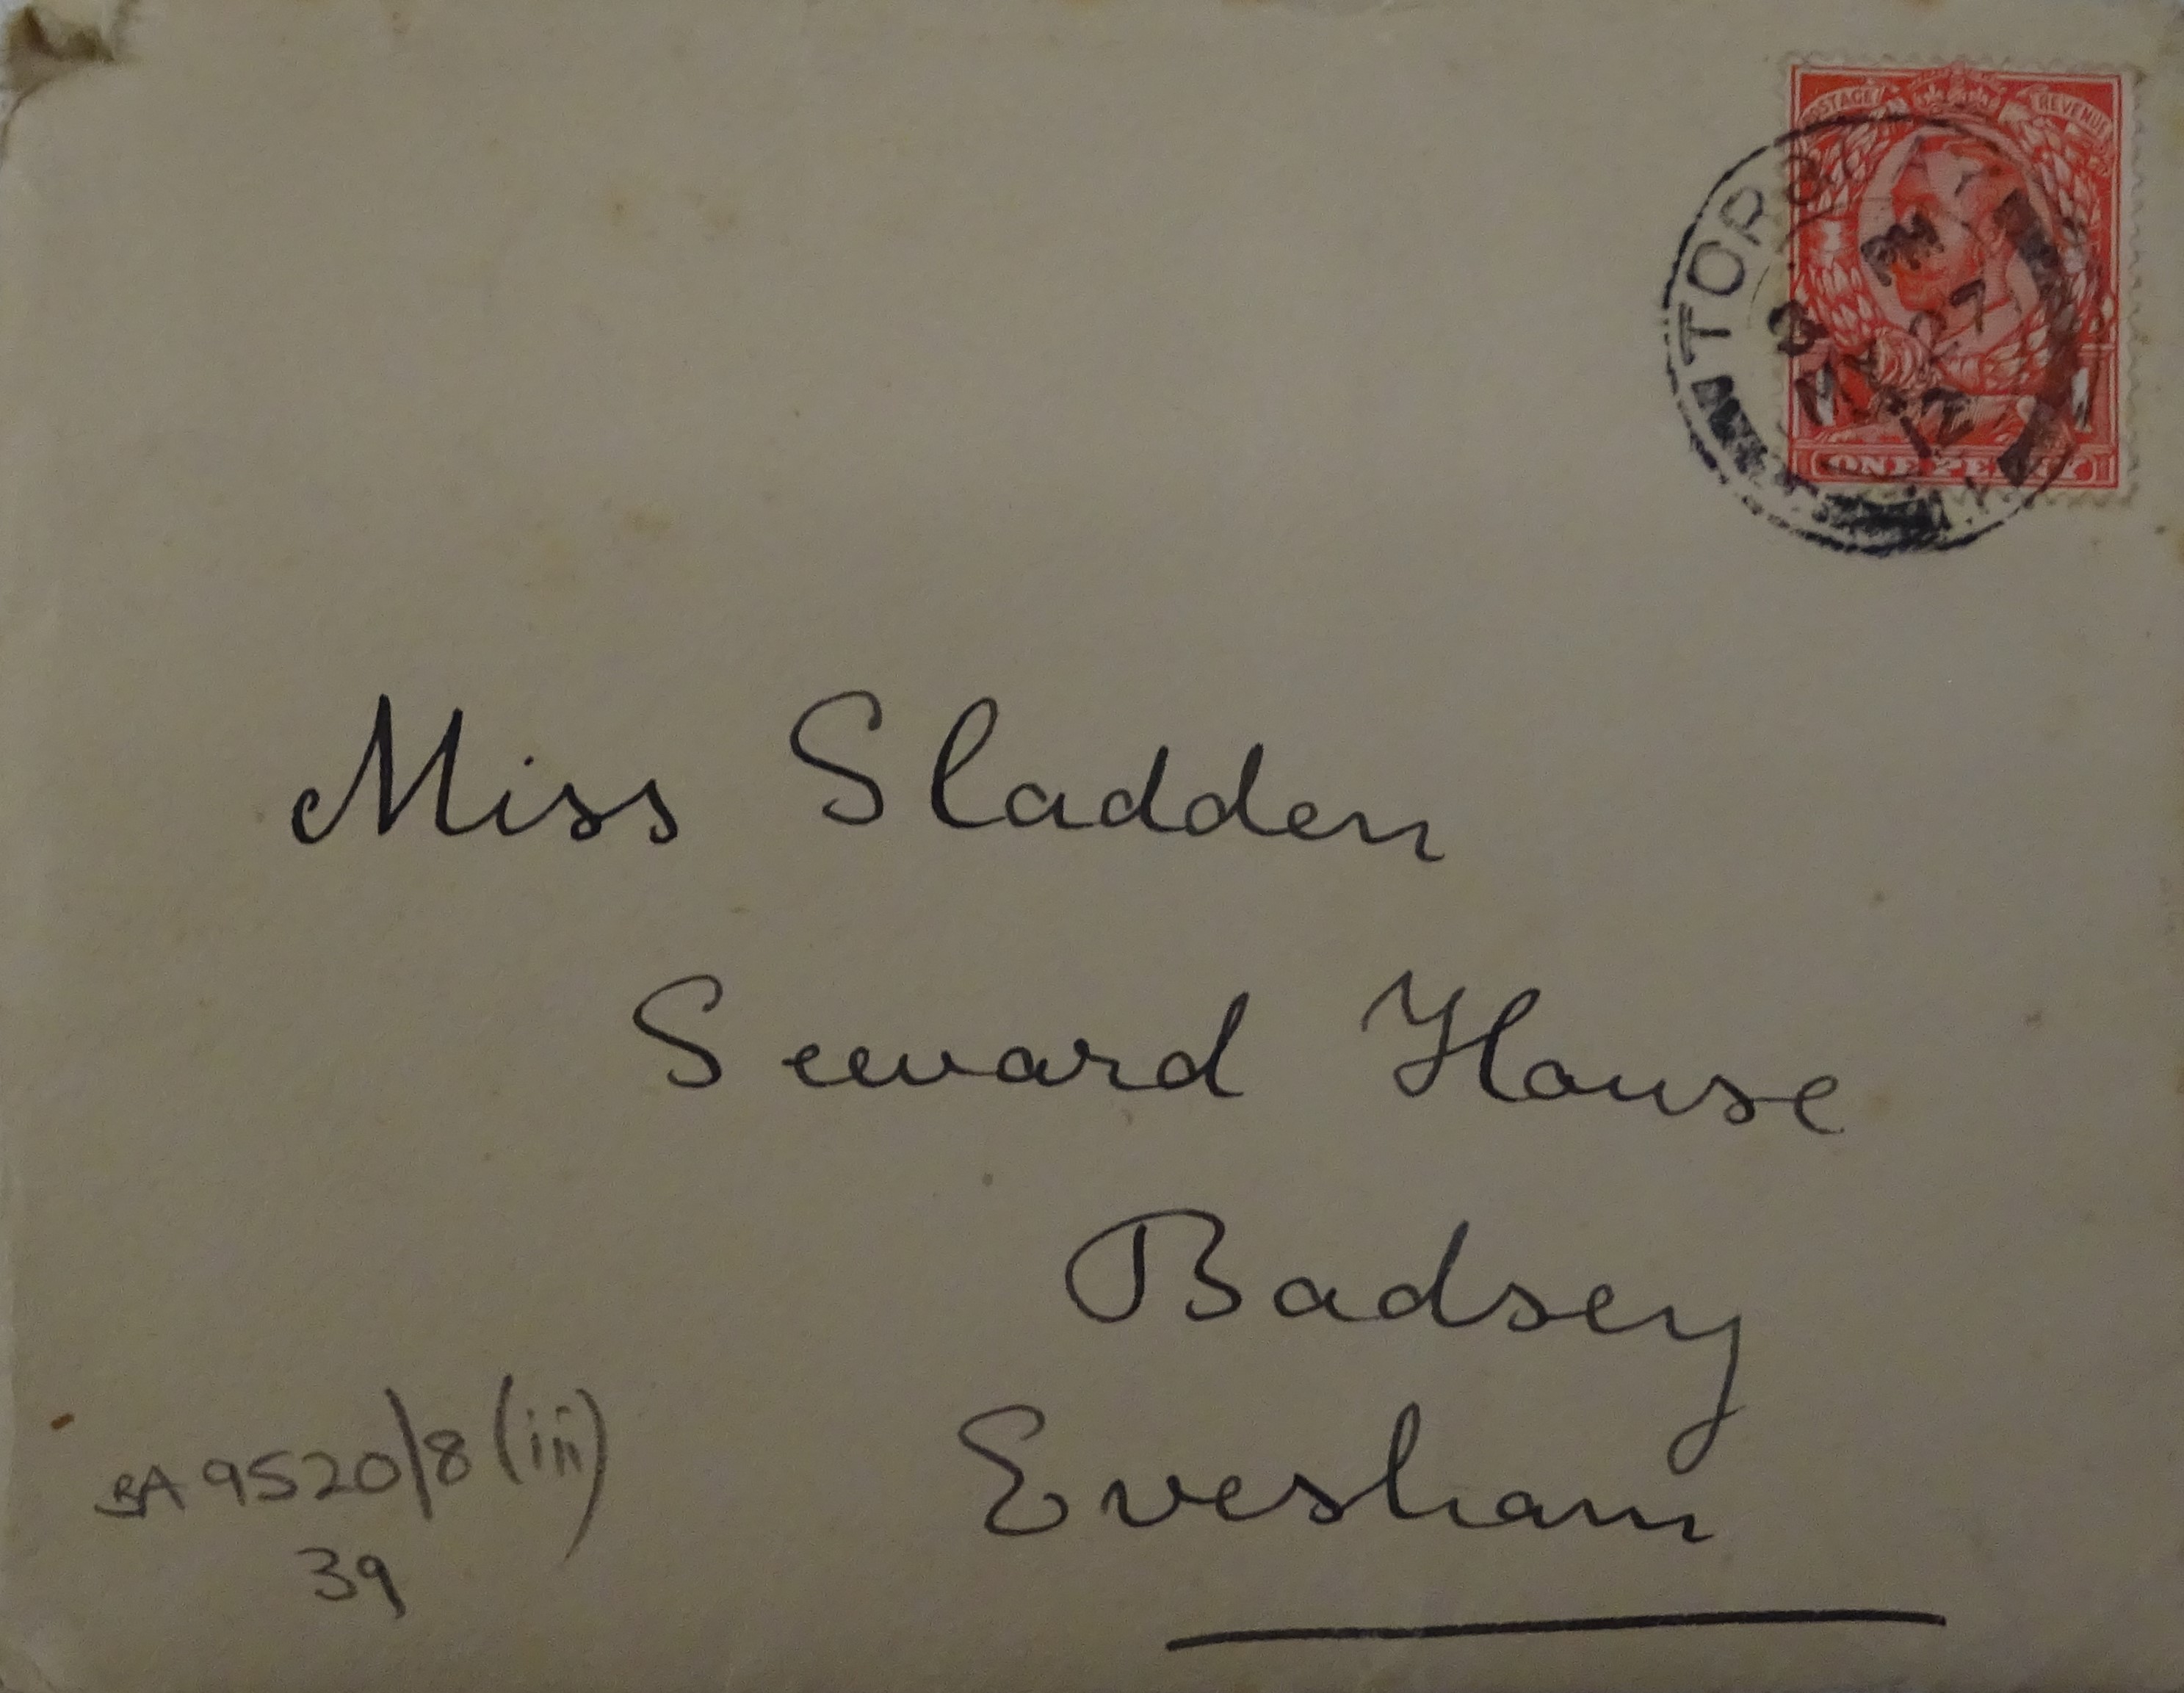 POSTAGE REVENUE
TORQUAY
PM
MY 27
12
ONE PENNY
Miss Sladden
Seward House
Badsey
Evesham
BA 9520/8 (iii)
39